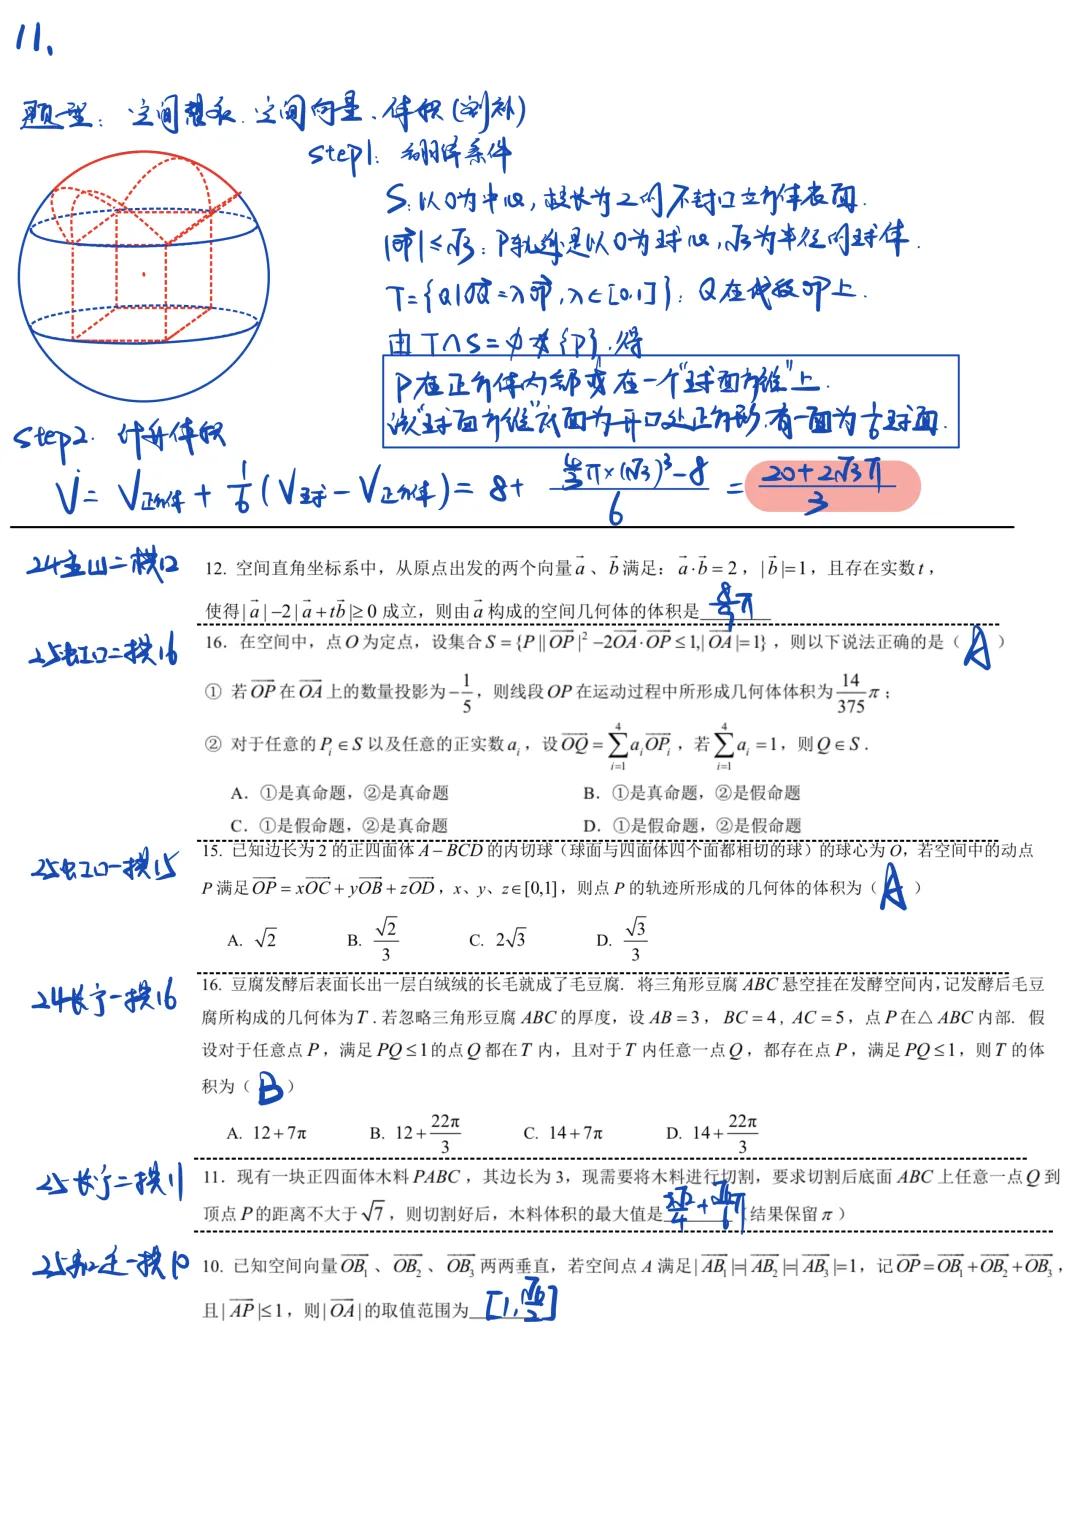 11、
题型：空间想象、空间向量、体积(割补)
step1：翻译条件
S：以O为中心，棱长为2的不封口立方体表面．
|OP|≤√3：P轨迹是以O为球心，√3为半径的球体．
T={Q|OQ=λOP，λ∈[0,1]}：Q在线段OP上．
由T∩S=∅或{P}，得
P在正方体内部或在一个“球面方锥”上．
该“球面方锥”底面为开口处正方形，有一面为1/6球面．
step2．计算体积
V=V正方体+1/6(V球-V正方体)=8+(4/3π×(√3)³-8)/6=(20+2√3π)/3
24宝山二模12
12. 空间直角坐标系中，从原点出发的两个向量a、b满足：a·b=2，|b|=1，且存在实数t，
使得|a|-2|a+tb|≥0成立，则由a构成的空间几何体的体积是 8/9π
25虹口二模16
16．在空间中，点O为定点，设集合S={P||OP|²-2OA·OP≤1,|OA|=1}，则以下说法正确的是（ A ）
① 若OP在OA上的数量投影为-1/5，则线段OP在运动过程中所形成几何体体积为14/375π；
② 对于任意的Pᵢ∈S以及任意的正实数aᵢ，设OQ=∑(i=1→4)aᵢOPᵢ，若∑(i=1→4)aᵢ=1，则Q∈S．
A．①是真命题，②是真命题 B．①是真命题，②是假命题
C．①是假命题，②是真命题 D．①是假命题，②是假命题
25虹口一模15
15. 已知边长为2的正四面体A-BCD的内切球（球面与四面体四个面都相切的球）的球心为O，若空间中的动点
P满足OP=xOC+yOB+zOD，x、y、z∈[0,1]，则点P的轨迹所形成的几何体的体积为（ A ）
A. √2 B. √2/3 C. 2√3 D. √3/3
24长宁一模16
16. 豆腐发酵后表面长出一层白绒绒的长毛就成了毛豆腐．将三角形豆腐ABC悬空挂在发酵空间内，记发酵后毛豆
腐所构成的几何体为T．若忽略三角形豆腐ABC的厚度，设AB=3，BC=4，AC=5，点P在△ABC内部．假
设对于任意点P，满足PQ≤1的点Q都在T内，且对于T内任意一点Q，都存在点P，满足PQ≤1，则T的体
积为（ B ）
A. 12+7π B. 12+22π/3 C. 14+7π D. 14+22π/3
25长宁二模11
11．现有一块正四面体木料PABC，其边长为3，现需要将木料进行切割，要求切割后底面ABC上任意一点Q到
顶点P的距离不大于√7，则切割好后，木料体积的最大值是 3√2/4+√6/6π （结果保留π）
25松江一模10
10. 已知空间向量OB₁、OB₂、OB₃两两垂直，若空间点A满足|AB₁|=|AB₂|=|AB₃|=1，记OP=OB₁+OB₂+OB₃，
且|AP|≤1，则|OA|的取值范围为 [1,√6/2]